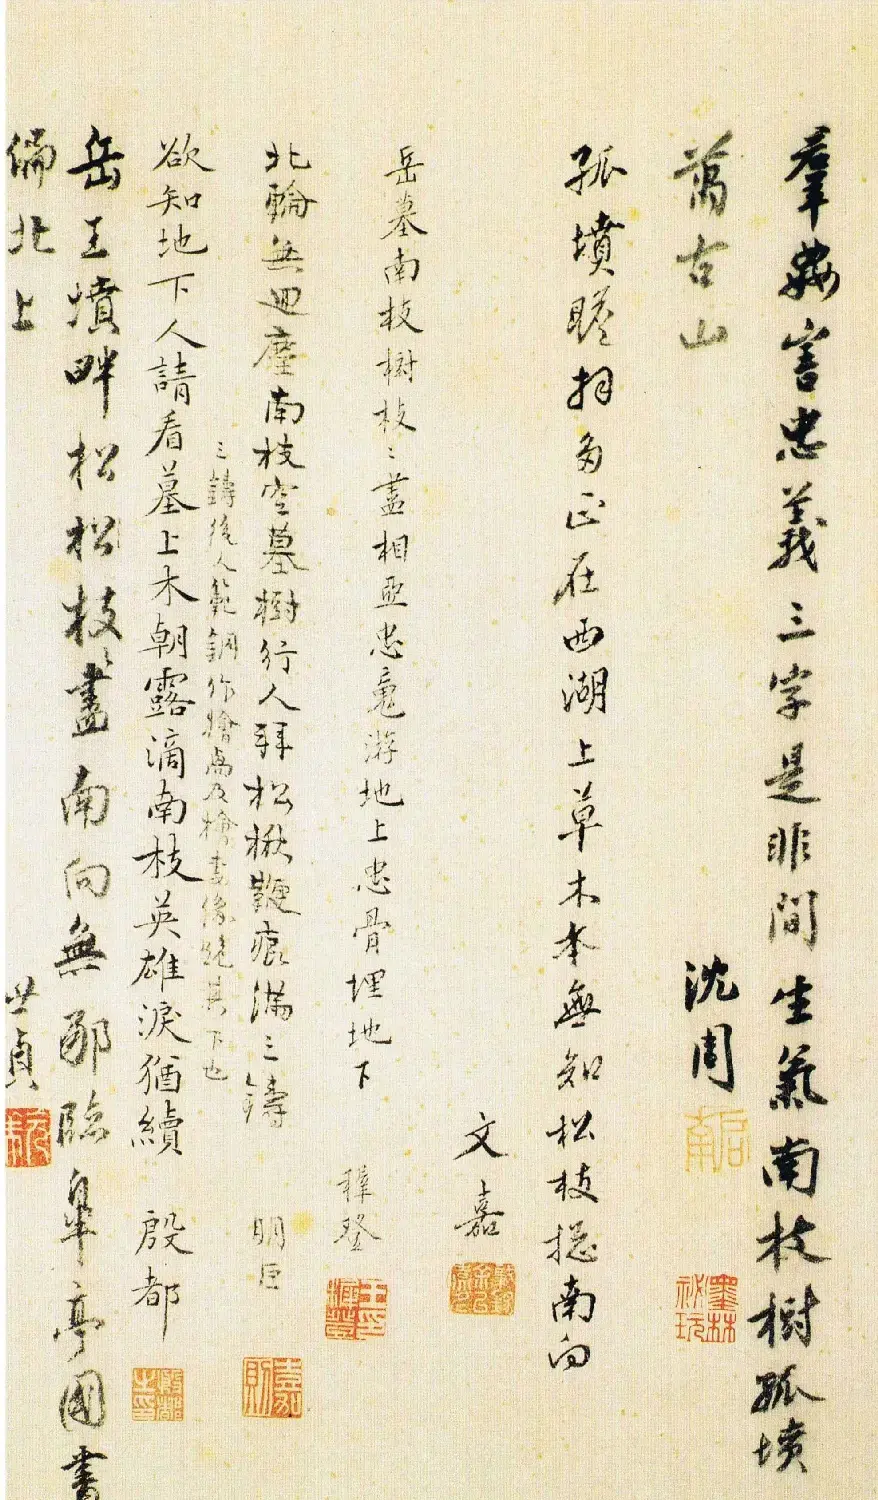 羣奸害忠義三字是非間生氣南枝樹孤墳
萬古山
沈周
啓南
墨林祕玩
孤墳瞻拜多正在西湖上草木本無知松枝揔南向
文嘉
岳墓南枝樹枝〻盡相亞忠䰟游地上忠骨埋地下
穉登
北轅無迴塵南枝空墓樹行人拜松楸鞭痕滿三鑄
三鑄後人範銅作檜卨及檜妻像跪其下也
明臣
嘉則
欲知地下人請看墓上木朝露滴南枝英雄淚猶續
殷都
岳王墳畔松松枝〻盡南向無那臨皋亭國書
偏北上
世貞